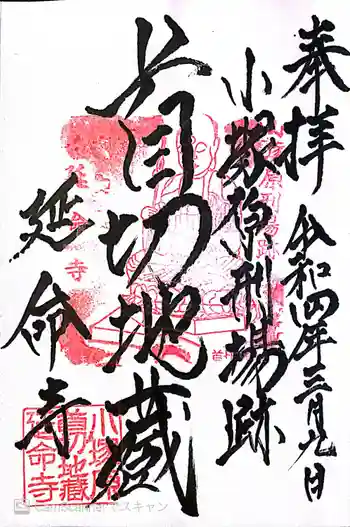 奉拝
令和四年三月九日
小塚原刑場跡
首切地蔵
延命寺
小塚原
首切地蔵
延命寺